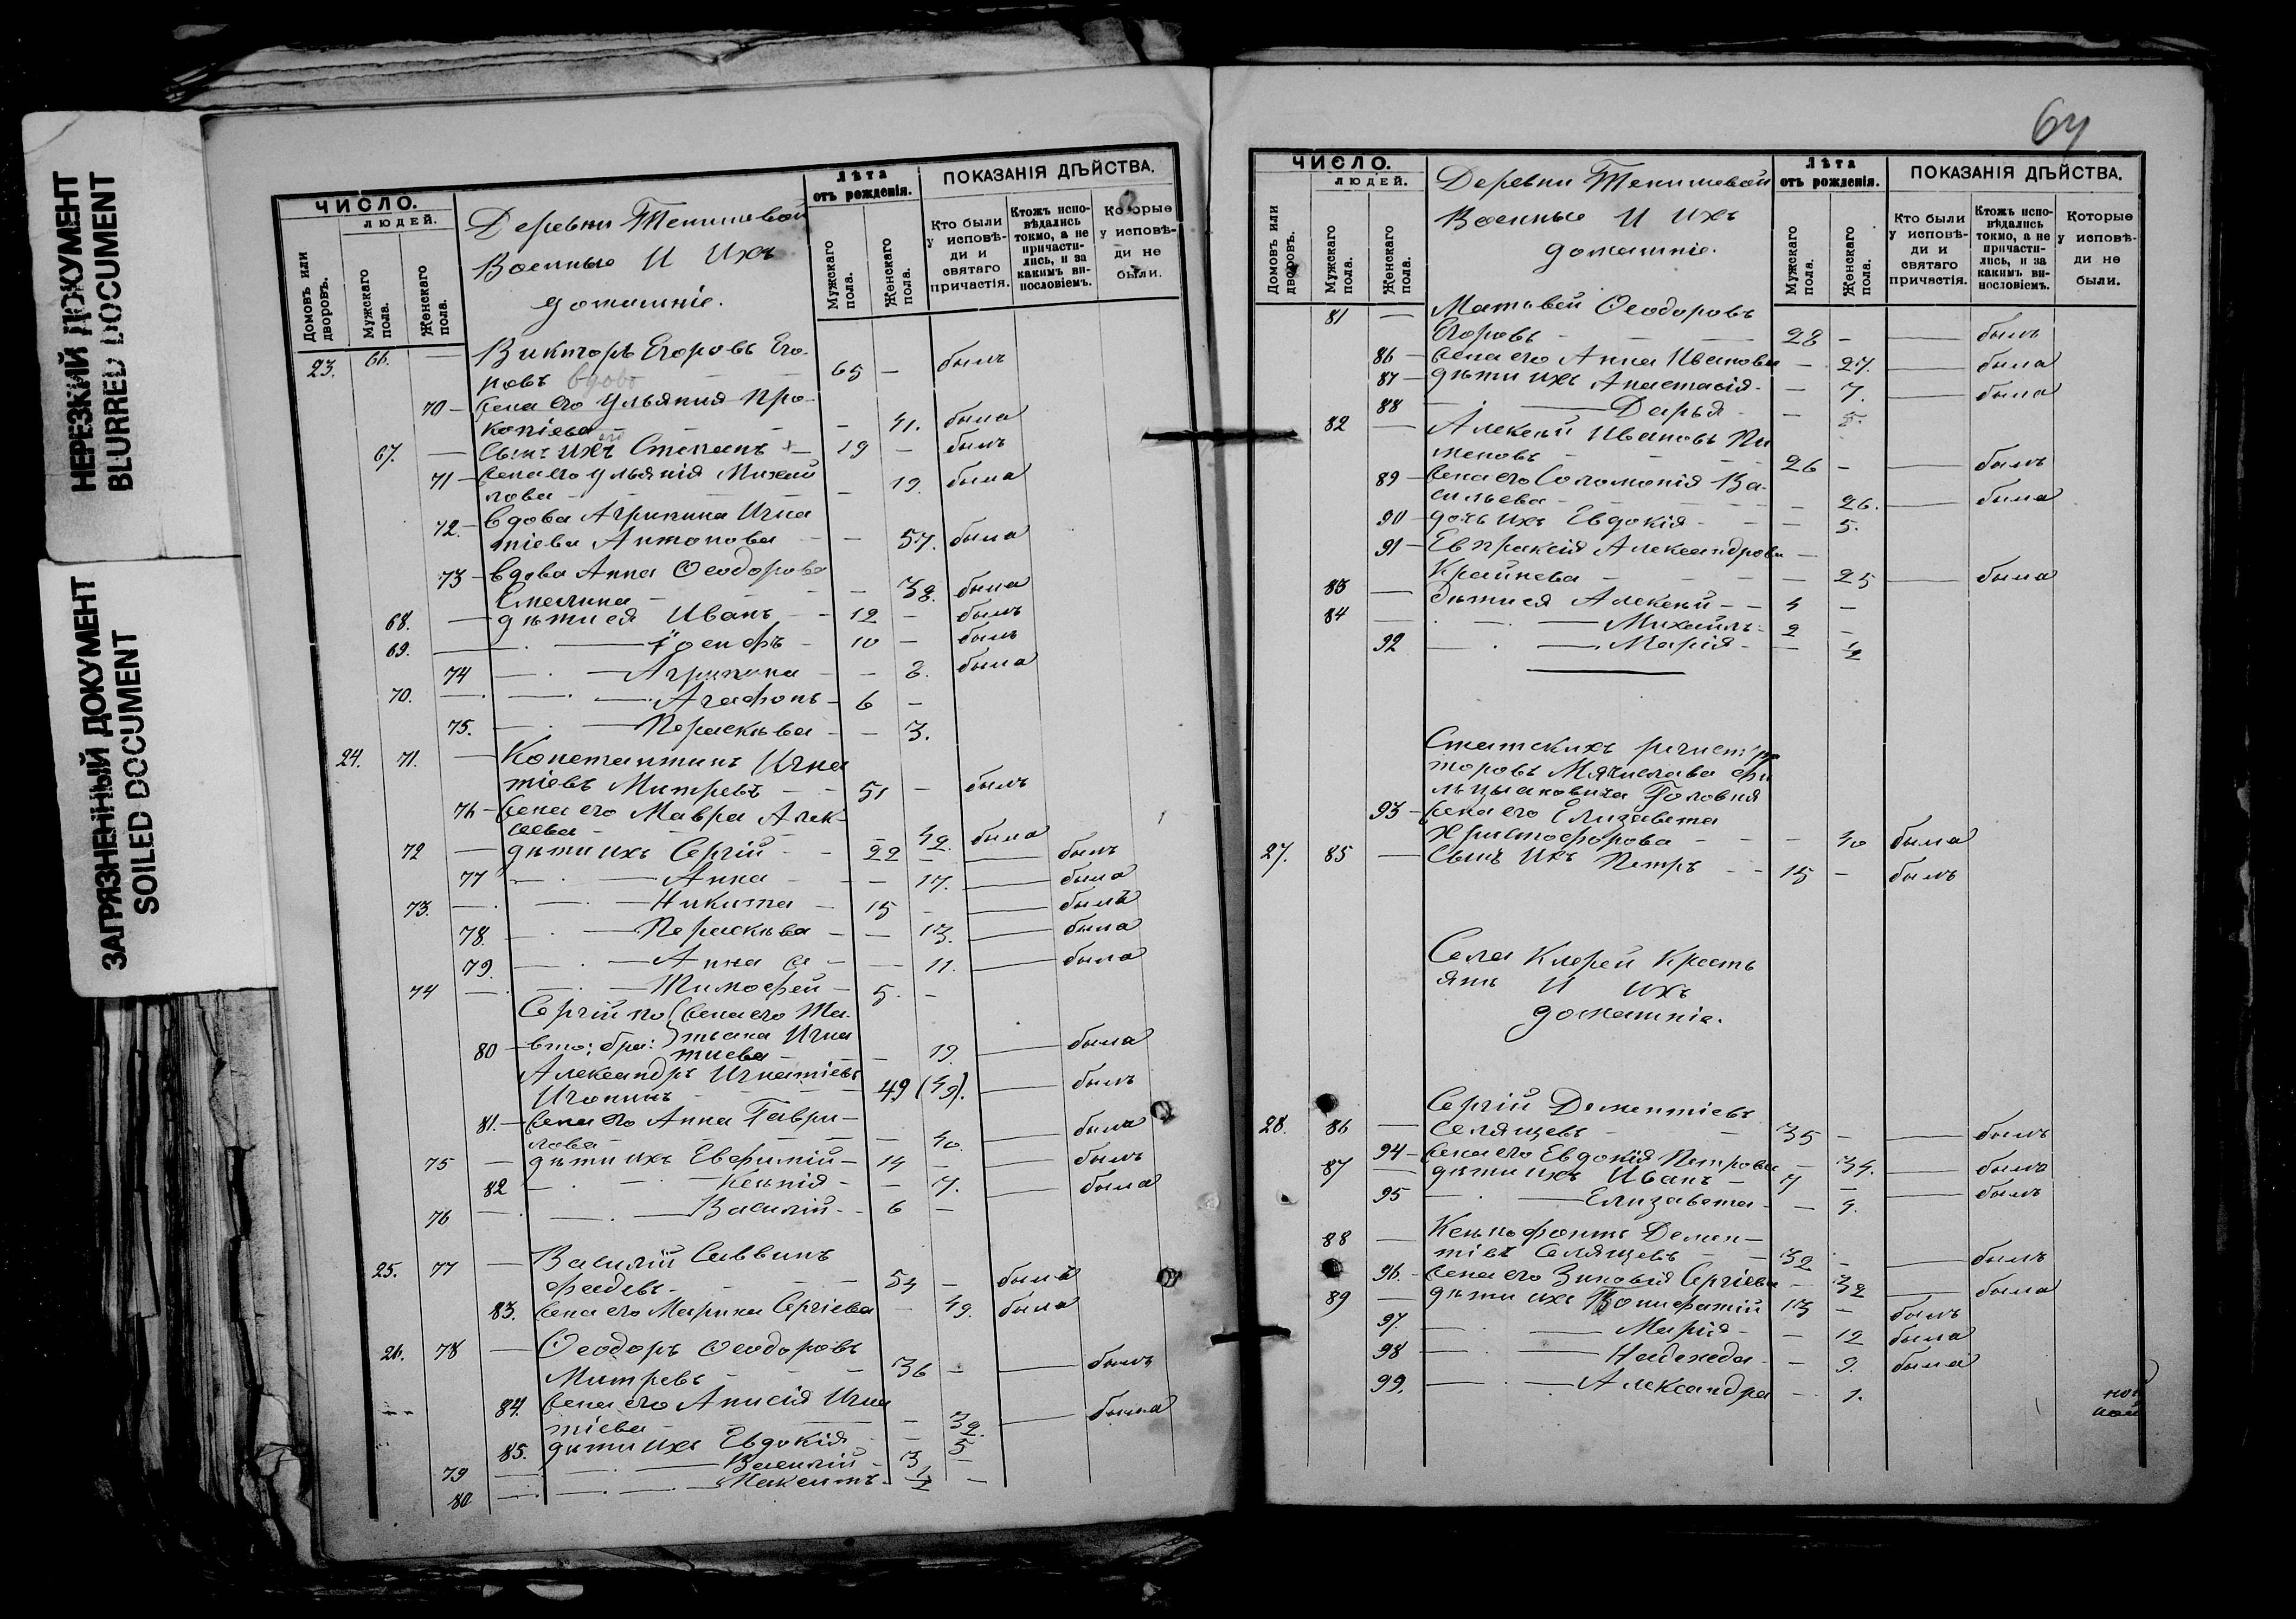 НЕРЕЗКИЙ ДОКУМЕНТ
BLURRED DOCUMENT
ЗАГРЯЗНЕННЫЙ ДОКУМЕНТ
SOILED DOCUMENT
ЧИСЛО.
ЛЮДЕЙ.
Домовъ или дворовъ.
Мужскаго пола.
Женскаго пола.
Деревни Тенишевой
Военные И Ихъ
домашніе.
Лѣта
отъ рожденія.
Мужскаго пола.
Женскаго пола.
ПОКАЗАНІЯ ДѢЙСТВА.
Кто были у исповѣди и святаго причастія.
Ктожъ исповѣдались токмо, а не причастились, и за какимъ винословіемъ.
Которые у исповѣди не были.
23. 66. — Викторъ Егоровъ Его-
ровъ вдовъ 65 — былъ
70 — жена его Ульянія Про-
копіева — 41. была
67. — Сынъ ихъ Степанъ — 19 — былъ
71 — жена его Ульянія Михай
лова — 19. была
72. — вдова Агрипина Игна
тіева Антонова — 57. была
73 — вдова Анна Ѳеодорова
— 38. была
68. — дѣти ея Иванъ — 12 — былъ
69. — Іосифъ — 10 — былъ
74 — Агрипина — 8. была
70. — Агафонъ — 6 —
75. — Параскѣва — 3.
24. 71. — Константинъ Игна
тіевъ Митревъ — 51 — былъ
76 — жена его Мавра Алек-
сѣева — 42. была
72 — дѣти ихъ Сергій — 22 — былъ
77 — Анна — 17. — была
73. — Никита — 15 — былъ
78. — Параскѣва — 13. — была
79. — Анна — 11. — была
74 — Тимофей — 5. —
Сергій по жена его Та-
80 — вто: бра: тіана Игна
тиева — 19. — была
Александръ Игнатіевъ
49 (49). — былъ
81. — жена его Анна Гаври-
лова — 40. — была
75 — дѣти ихъ Евфимій — 14 — былъ
82 — Ксенія — 7. — была
76 — Василій — 6 —
25. 77 — Василій Саввинъ
Фадевъ — 54 — былъ
83. жена его Марина Сергіева 49. была
26. 78 — Ѳеодоръ Ѳеодоровъ
Митревъ — 36 — былъ
84. жена его Анисія Игна
тіева — 32. — была
85. дѣти ихъ Евдокія — 5
79 — Василій — 3 —
80 — Максимъ — 1/2 —
64
ЧИСЛО.
ЛЮДЕЙ.
Домовъ или дворовъ.
Мужскаго пола.
Женскаго пола.
Деревни Тенишевой
Военные И ихъ
домашніе.
Лѣта
отъ рожденія.
Мужскаго пола.
Женскаго пола.
ПОКАЗАНІЯ ДѢЙСТВА.
Кто были у исповѣди и святаго причастія.
Ктожъ исповѣдались токмо, а не причастились, и за какимъ винословіемъ.
Которые у исповѣди не были.
81 — Матвей Ѳеодоровъ
Егоровъ — 28 — былъ
86 — жена его Анна Иванова — 27. — была
87 — дѣти ихъ Анастасія — 7. — была
88 — Дарья — 5.
82 — Алексѣй Ивановъ Пи
меновъ — 26 — былъ
89 — жена его Соломонія Ва-
сильева — 26. — была
90 — дочь ихъ Евдокія — 5.
91 — Евпраксія Александрова —
Крайнева — 25 — была
83 — дѣти ея Алексѣй — 4 —
84 — Михаилъ — 2 —
92 — Марія — 1/2
Статскихъ регистра
торовъ Мячислава
Головня
93 — жена его Елизавета
Христофорова — 40 была
27. 85 — Сынъ Ихъ Петръ — 15 — былъ
Села Ключей Кресть
янъ И ихъ
домашніе.
Сергій Дементіевъ
28. 86 — Селящевъ — 35 — былъ
94 — жена его Евдокія Петрова — 34. — была
87 — дѣти ихъ Иванъ — 7 — былъ
95 — Елизавета — 4.
88 — Ксенофонтъ Демен-
тіевъ Селящевъ — 32 — былъ
96. жена его Зиновія Сергіева — 32 — была
89 — дѣти ихъ Вонифатій 13 — былъ
97. — Марія — 12 была
98 — Надежда — 9. была
99. — Александра — 1.